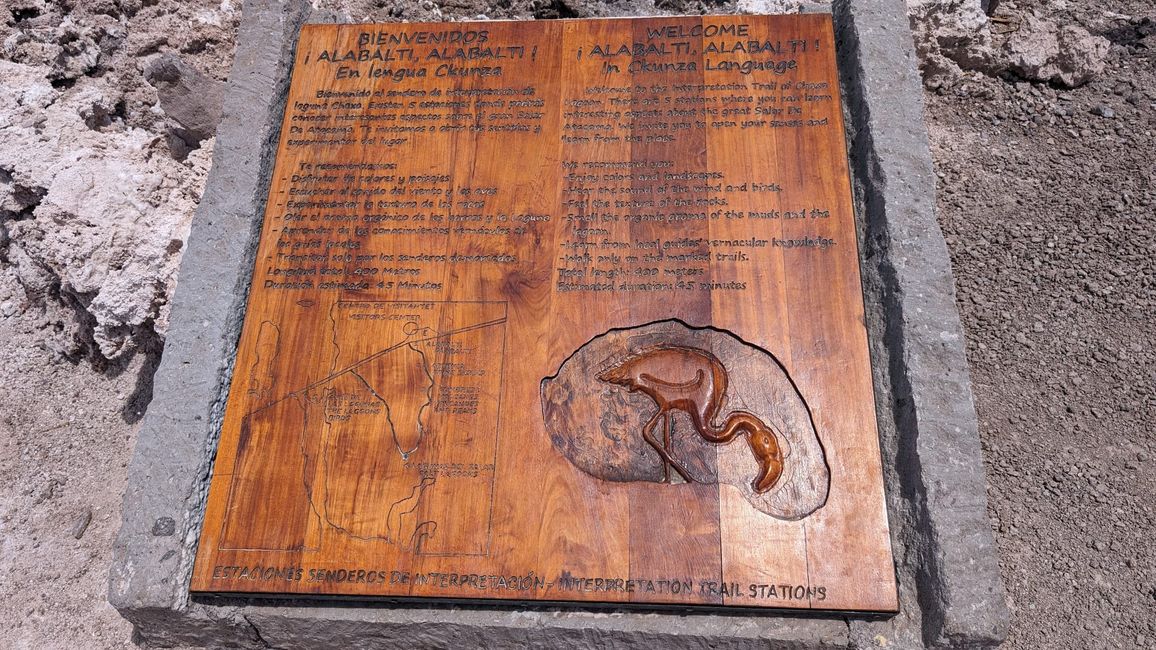 BIENVENIDOS
¡ ALABALTI, ALABALTI !
En lengua Ckunza
Bienvenido al sendero de interpretación de
laguna Chaxa. Existen 5 estaciones donde podrás
conocer interesantes aspectos sobre el gran Salar
De Atacama. Te invitamos a abrir tus sentidos y
experimentar del lugar.
Te recomendamos:
- Disfrutar de colores y paisajes
- Escuchar el sonido del viento y las aves
- Experimentar la textura de las rocas
- Oler el aroma orgánico de los barros y la Laguna
- Aprender de los conocimientos vernáculos de
los guías locales
- Transitar solo por los senderos demarcados
Longitud total: 400 Metros
Duración estimada: 45 Minutos
WELCOME
¡ ALABALTI, ALABALTI !
In Ckunza Language
Welcome to the Interpretation Trail of Chaxa
Lagoon. There are 5 stations where you can learn
interesting aspects about the great Salar De
Atacama. We invite you to open your senses and
learn from the place.
We recommend you:
-Enjoy colors and landscapes.
-Hear the sound of the wind and birds.
-Feel the texture of the rocks.
-Smell the organic aroma of the muds and the
lagoon.
-Learn from local guides' vernacular knowledge.
-Walk only on the marked trails.
Total length: 400 meters
Estimated duration: 45 minutes
CENTRO DE VISITANTES
VISITORS CENTER
THE LAGOONS
BIRDS
SALT ROCKS
ESTACIONES SENDEROS DE INTERPRETACIÓN - INTERPRETATION TRAIL STATIONS